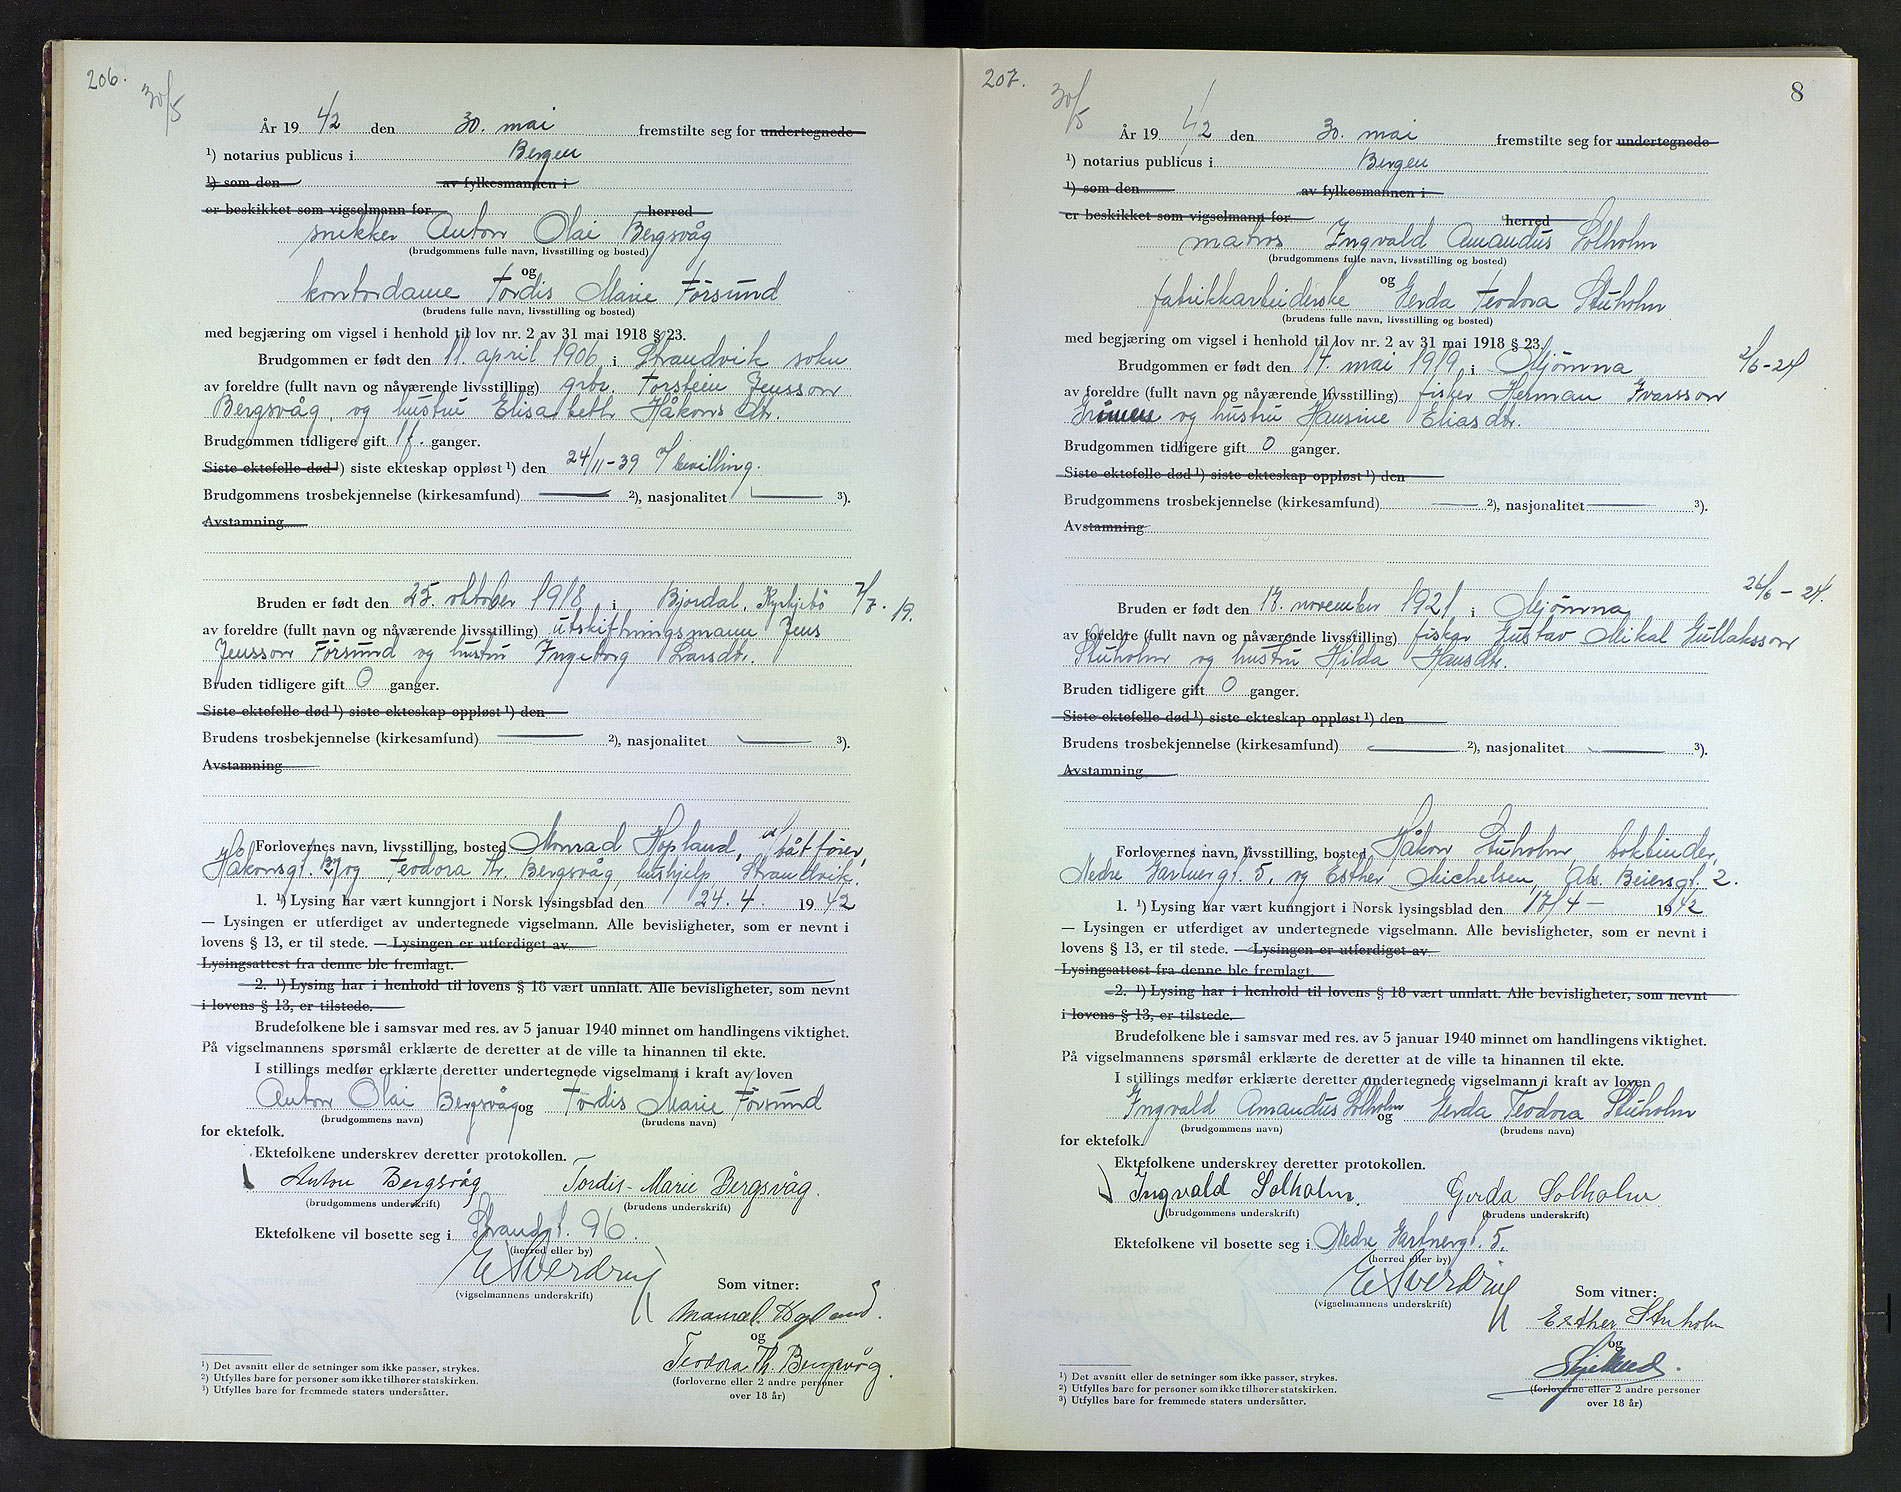 206.
30/5
År 19 42 den 30. mai fremstilte seg for undertegnede
¹) notarius publicus i Bergen
¹) som den av fylkesmannen i
er beskikket som vigselmann for herred
snekker Anton Olai Bergsvåg
(brudgommens fulle navn, livsstilling og bosted)
og
kontordame Tordis Marie Førsund
(brudens fulle navn, livsstilling og bosted)
med begjæring om vigsel i henhold til lov nr. 2 av 31 mai 1918 § 23.
Brudgommen er født den 11. april 1906 i Strandvik sokn
av foreldre (fullt navn og nåværende livsstilling) grbr. Torstein Jensson
Bergsvåg og hustru Elisabeth Håkons dtr.
Brudgommen tidligere gift 1 f. ganger.
Siste ektefelle død ¹) siste ekteskap oppløst ¹) den 24/11-39 v/ bevilling.
Brudgommens trosbekjennelse (kirkesamfund) ²), nasjonalitet ³).
Avstamning
Bruden er født den 25. oktober 1918 i Bjordal, Kyrkjebø 7/7. 19.
av foreldre (fullt navn og nåværende livsstilling) utskiftningsmann Jens
Jensson Førsund og hustru Ingeborg Larsdtr.
Bruden tidligere gift 0 ganger.
Siste ektefelle død ¹) siste ekteskap oppløst ¹) den
Brudens trosbekjennelse (kirkesamfund) ²), nasjonalitet ³).
Avstamning
Forlovernes navn, livsstilling, bosted Monrad Hopland, båtfører,
Håkonsgt. 27 og Teodora Th. Bergsvåg, hushjelp, Strandvik.
1. ¹) Lysing har vært kunngjort i Norsk lysingsblad den 24. 4. 19 42
— Lysingen er utferdiget av undertegnede vigselmann. Alle bevisligheter, som er nevnt i
lovens § 13, er til stede. — Lysingen er utferdiget av
Lysingsattest fra denne ble fremlagt.
2. ¹) Lysing har i henhold til lovens § 18 vært unnlatt. Alle bevisligheter, som nevnt
i lovens § 13, er tilstede.
Brudefolkene ble i samsvar med res. av 5 januar 1940 minnet om handlingens viktighet.
På vigselmannens spørsmål erklærte de deretter at de ville ta hinannen til ekte.
I stillings medfør erklærte deretter undertegnede vigselmann i kraft av loven
Anton Olai Bergsvåg og Tordis Marie Førsund
(brudgommens navn) (brudens navn)
for ektefolk.
Ektefolkene underskrev deretter protokollen.
Anton Bergsvåg Tordis-Marie Bergsvåg.
(brudgommens underskrift) (brudens underskrift)
Ektefolkene vil bosette seg i Strandgt. 96.
(herred eller by)
E Sverdrup
(vigselmannens underskrift)
Som vitner:
Monrad Hopland.
og
Teodora Th. Bergsvåg.
(forloverne eller 2 andre personer
over 18 år)
¹) Det avsnitt eller de setninger som ikke passer, strykes.
²) Utfylles bare for personer som ikke tilhører statskirken.
³) Utfylles bare for fremmede staters undersåtter.
207.
8
30/5
År 19 42 den 30. mai fremstilte seg for undertegnede
¹) notarius publicus i Bergen
¹) som den av fylkesmannen i
er beskikket som vigselmann for herred
matros Ingvald Amandus Solholm
(brudgommens fulle navn, livsstilling og bosted)
og
fabrikkarbeiderske Gerda Teodora Stuholm
(brudens fulle navn, livsstilling og bosted)
med begjæring om vigsel i henhold til lov nr. 2 av 31 mai 1918 § 23.
Brudgommen er født den 14. mai 1919 i Mjømna 2/6-24
av foreldre (fullt navn og nåværende livsstilling) fisker Herman Ivarsson
og hustru Hansine Eliasdtr.
Brudgommen tidligere gift 0 ganger.
Siste ektefelle død ¹) siste ekteskap oppløst ¹) den
Brudgommens trosbekjennelse (kirkesamfund) ²), nasjonalitet ³).
Avstamning
Bruden er født den 17. november 1921 i Mjømna 26/6-24.
av foreldre (fullt navn og nåværende livsstilling) fisker Gustav Mikal Gullaksson
Stuholm og hustru Hilda Hansdtr.
Bruden tidligere gift 0 ganger.
Siste ektefelle død ¹) siste ekteskap oppløst ¹) den
Brudens trosbekjennelse (kirkesamfund) ²), nasjonalitet ³).
Avstamning
Forlovernes navn, livsstilling, bosted Håkon Stuholm, bokbinder,
Nedre Hartnergt. 5, og Esther Michelsen, Abs. Beiersgt. 2.
1. ¹) Lysing har vært kunngjort i Norsk lysingsblad den 17/4- 19 42
— Lysingen er utferdiget av undertegnede vigselmann. Alle bevisligheter, som er nevnt i
lovens § 13, er til stede. — Lysingen er utferdiget av
Lysingsattest fra denne ble fremlagt.
2. ¹) Lysing har i henhold til lovens § 18 vært unnlatt. Alle bevisligheter, som nevnt
i lovens § 13, er tilstede.
Brudefolkene ble i samsvar med res. av 5 januar 1940 minnet om handlingens viktighet.
På vigselmannens spørsmål erklærte de deretter at de ville ta hinannen til ekte.
I stillings medfør erklærte deretter undertegnede vigselmann i kraft av loven
Ingvald Amandus Solholm og Gerda Teodora Stuholm
(brudgommens navn) (brudens navn)
for ektefolk.
Ektefolkene underskrev deretter protokollen.
Ingvald Solholm. Gerda Solholm
(brudgommens underskrift) (brudens underskrift)
Ektefolkene vil bosette seg i Nedre Hartnergt. 5.
(herred eller by)
E Sverdrup
(vigselmannens underskrift)
Som vitner:
Esther Stuholm
og
(forloverne eller 2 andre personer
over 18 år)
¹) Det avsnitt eller de setninger som ikke passer, strykes.
²) Utfylles bare for personer som ikke tilhører statskirken.
³) Utfylles bare for fremmede staters undersåtter.